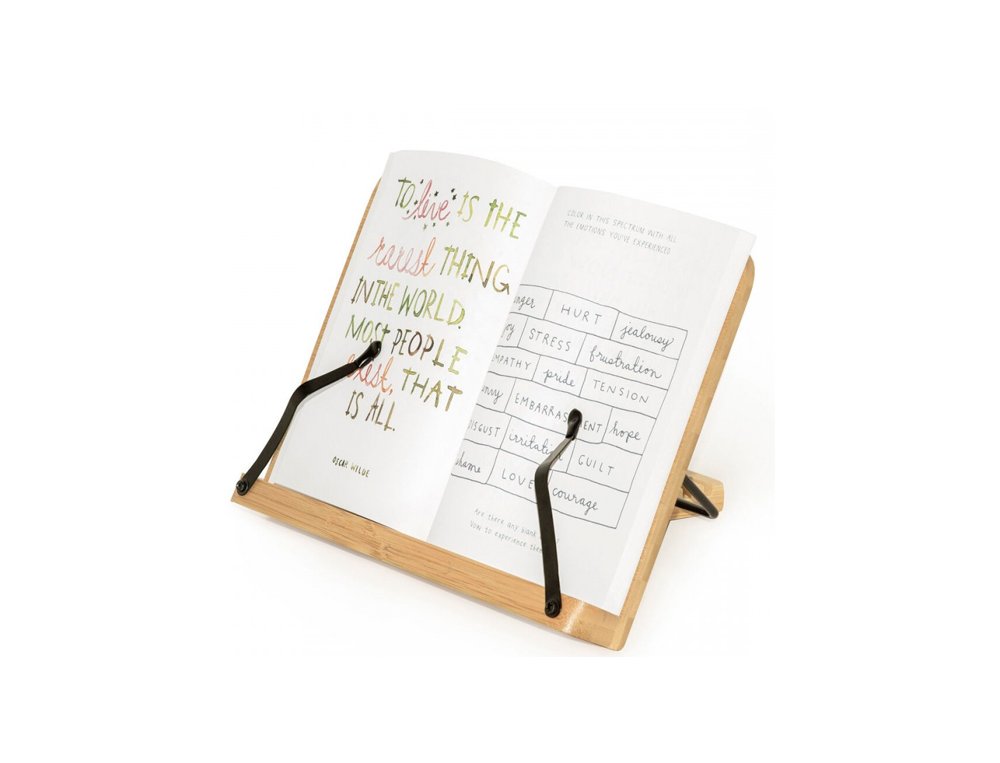 TO live IS THE
rarest THING
IN THE WORLD.
MOST PEOPLE
exist, THAT
IS ALL.
OSCAR WILDE
COLOR IN THIS SPECTRUM WITH ALL
THE EMOTIONS YOU'VE EXPERIENCED
HURT jealousy
STRESS frustration
pride TENSION
hope
DISGUST irritation GUILT
shame LOVE courage
Are there any blank